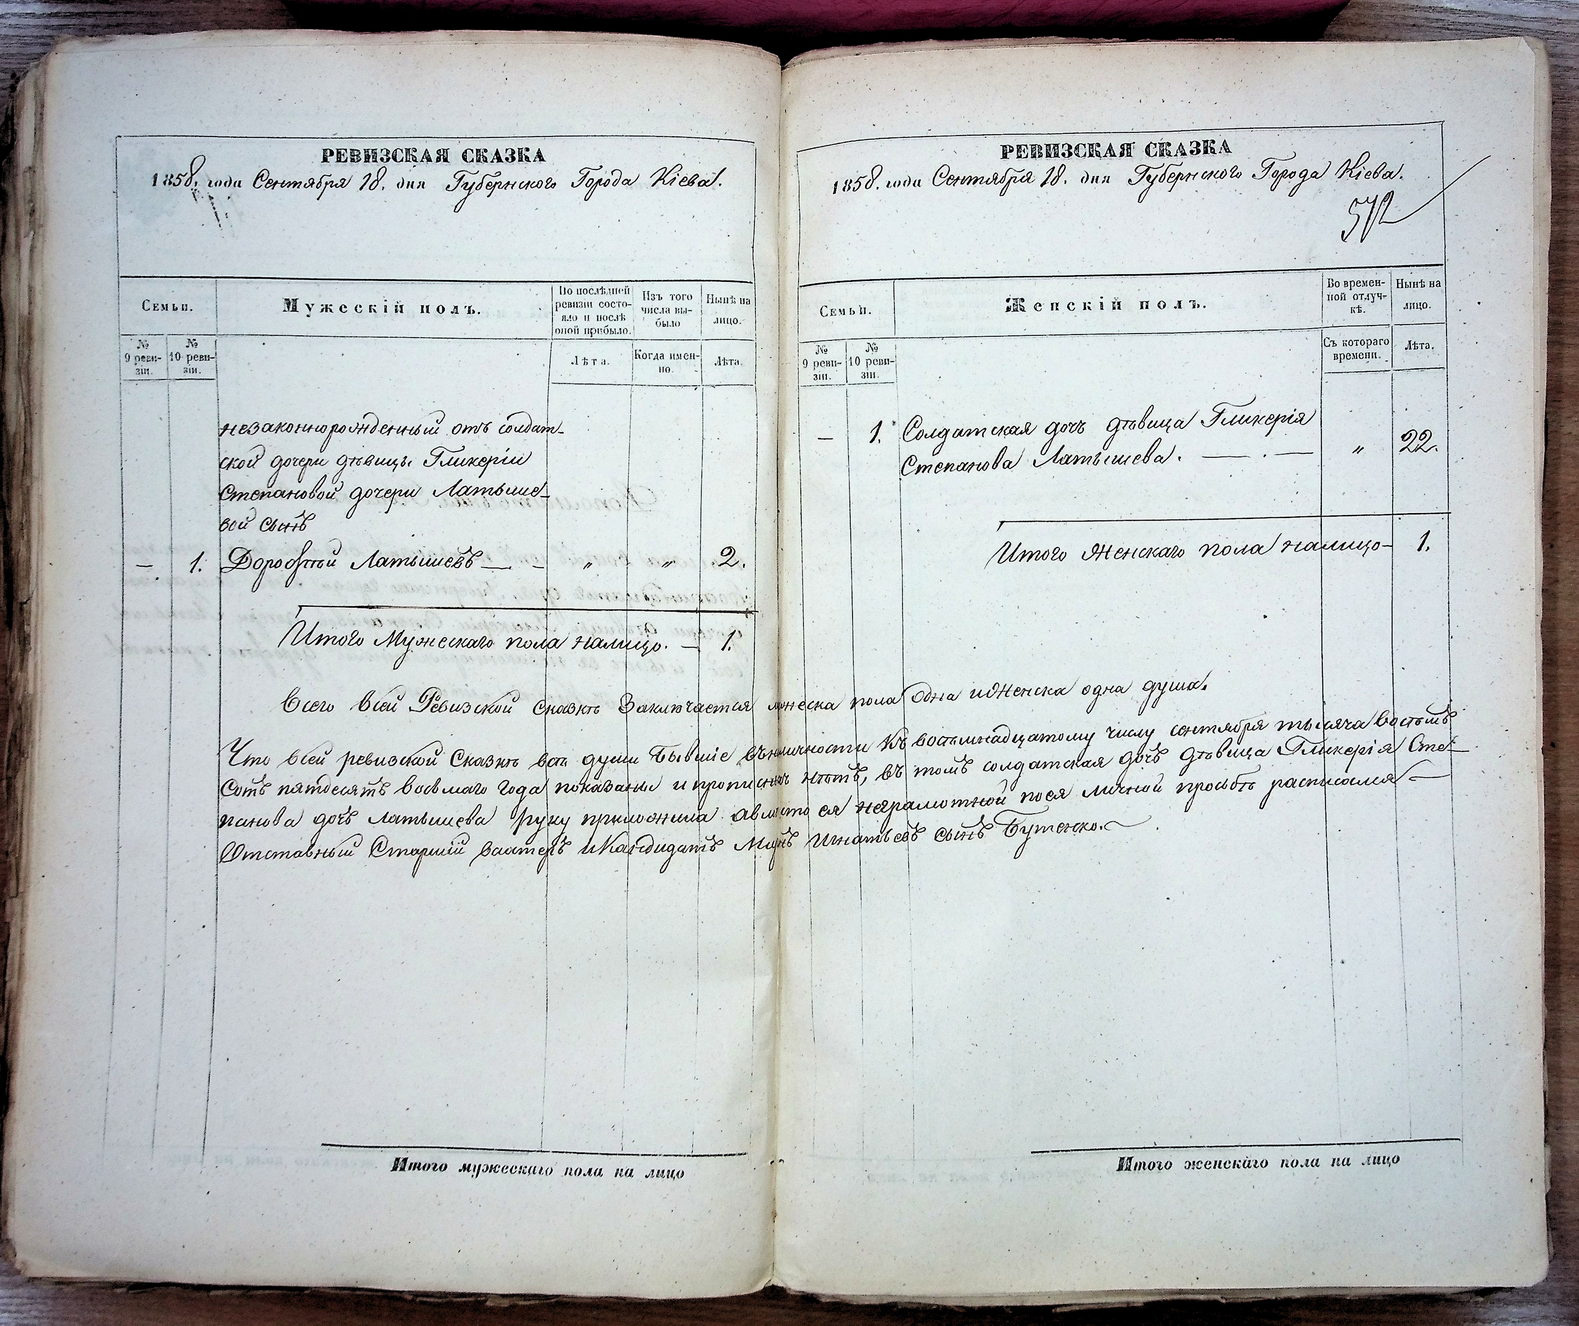 РЕВИЗСКАЯ СКАЗКА
1858. года Сентября 18. дня Губернского Города Кіева.
Семьи.
Мужескій полъ.
По послѣдней ревизіи состояло и послѣ оной прибыло.
Изъ того числа выбыло
Нынѣ на лицо.
№ 9 ревизіи.
№ 10 ревизіи.
Лѣта.
Когда именно.
Лѣта.
незаконнорожденный отъ солдат-
ской дочери дѣвицы Гликеріи
Степановой дочери Латыше-
вой сынъ
— 1. Дорофѣй Латышевъ — — „ „ 2.
Итого Мужескаго пола налицо. — 1.
Итого мужескаго пола на лицо
РЕВИЗСКАЯ СКАЗКА
1858. года Сентября 18. дня Губернского Города Кіева.
572
Семьи.
Женскій полъ.
Во временной отлучкѣ.
Нынѣ на лицо.
№ 9 ревизіи.
№ 10 ревизіи.
Съ котораго времени.
Лѣта.
— 1. Солдатская дочь дѣвица Гликерія
Степанова Латышева. — . — „ 22.
Итого Женскаго пола налицо — 1.
Всего всей Ревизской сказкѣ Заключается мужеска пола одна и Женска одна душа.
Что всей ревизской Сказкѣ всѣ души бывшіе въ наличности Къ восемнадцатому числу сентября тысяча восемъ
Сотъ пятдесятъ восьмаго года показаны и прописныхъ нѣтъ, въ томъ солдатская дочь дѣвица Гликерія Сте-
панова дочь Латышева руку приложила а вместо ея неграмотной по ея личной просьбѣ расписался —
Отставный Старшій вахтеръ и Кандидатъ Игнатьевъ сынъ Бутенко.
Итого женскаго пола на лицо